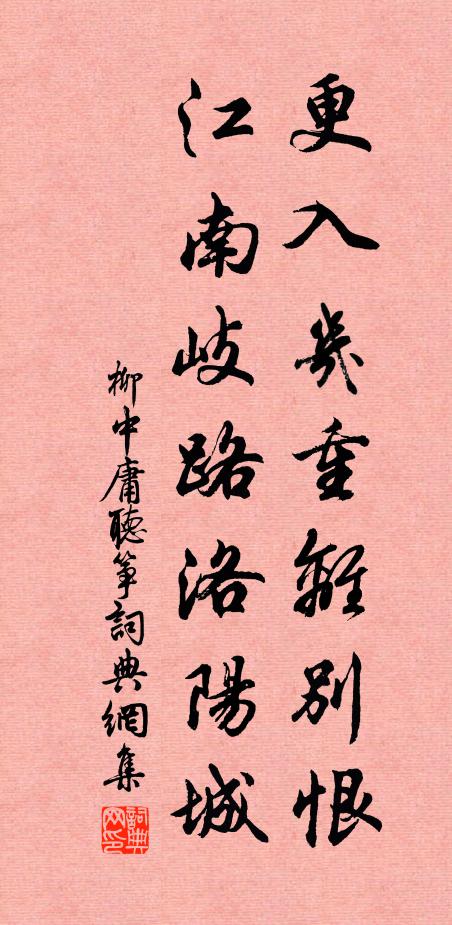 更入幾重離別恨
江南歧路洛陽城
柳中庸聽箏詞典網集
詞典网印